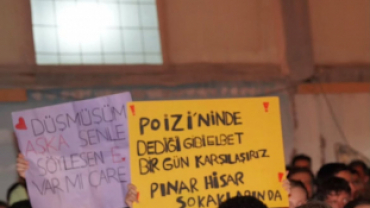 DÜŞMÜŞÜM
AŞKA SENLE
SÖYLESEN E
VAR MI ÇARE
POİZİ'NİNDE
DEDİĞİ GİBİ ELBET
BİR GÜN KARŞILAŞIRIZ
PINAR HİSAR
SOKAKLARINDA